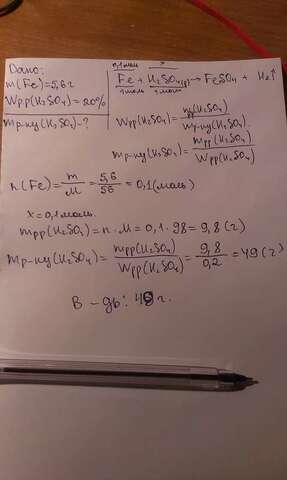 Дано:
m(Fe)=5,6г
Wрр(H₂SO₄)=20%
mр-ну(H₂SO₄)-?
0,1моль x
Fe + H₂SO₄(р)→ FeSO₄ + H₂↑
1моль 1моль
Wрр(H₂SO₄)= mрр(H₂SO₄) / mр-ну(H₂SO₄)
mр-ну(H₂SO₄)= mрр(H₂SO₄) / Wрр(H₂SO₄)
n(Fe)= m / M = 5,6 / 56 =0,1(моль)
x=0,1моль.
mрр(H₂SO₄)=n·M=0,1·98=9,8(г)
mр-ну(H₂SO₄)= mрр(H₂SO₄) / Wрр(H₂SO₄) = 9,8 / 0,2 =49(г)
В-дь: 49г.